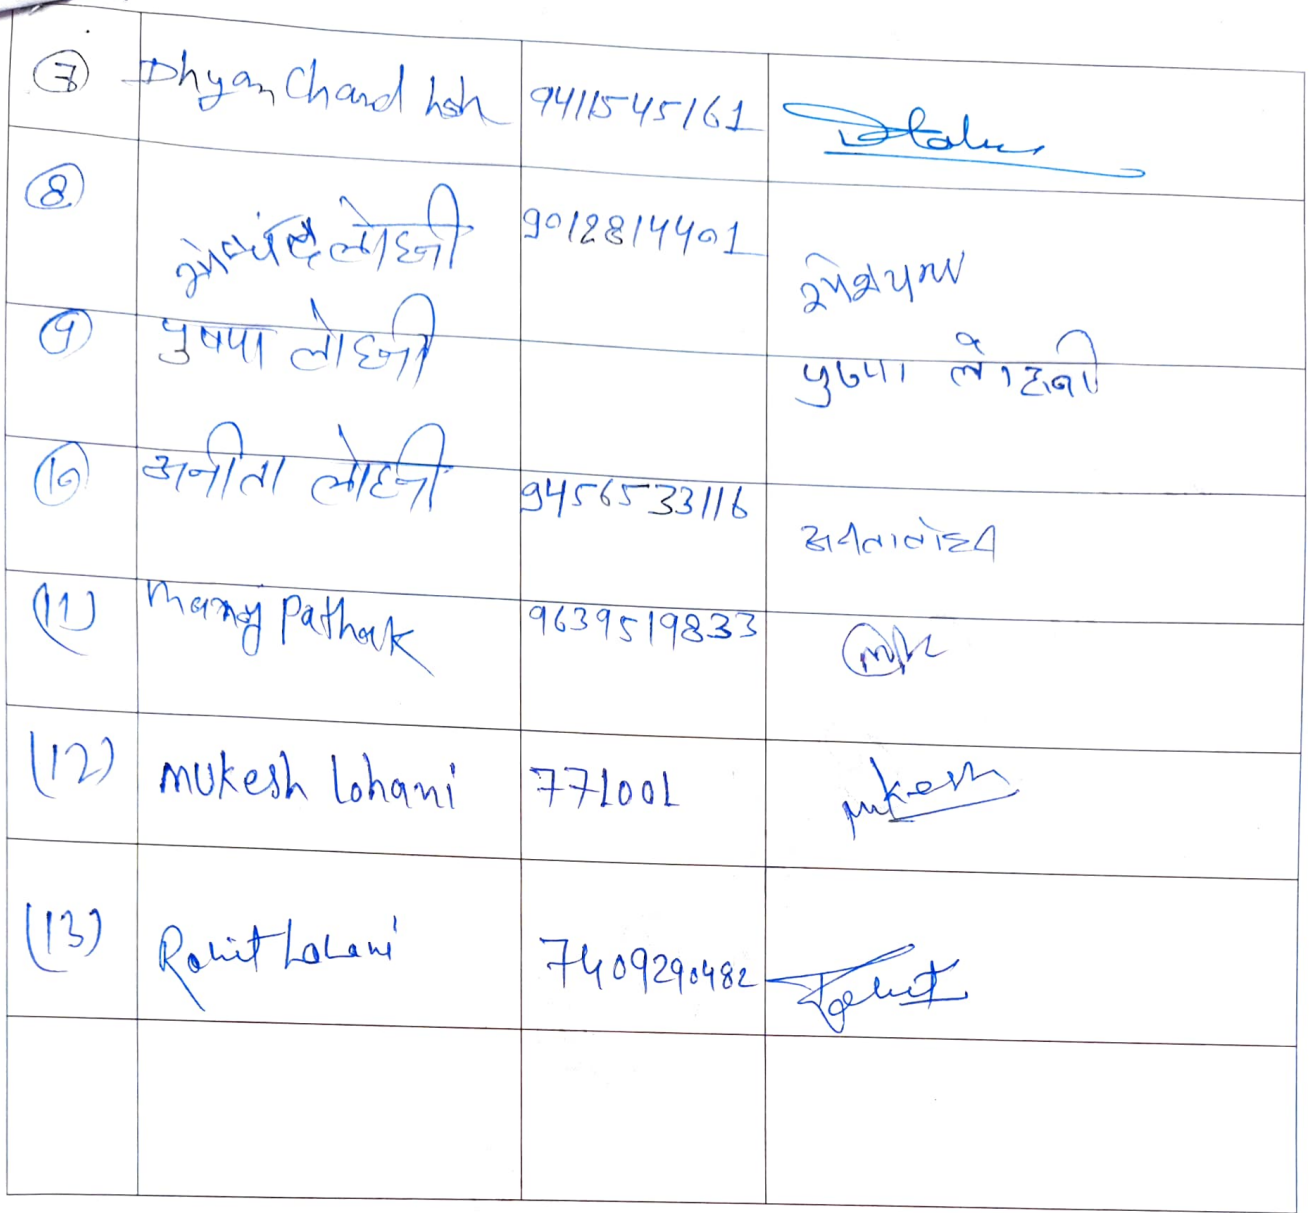 7 Dhyan Chand 9411545161
8 लोहनी 9012814401
9 पुषपा लोहनी पुष्पा लोहनी
10 अनीता लोहनी 9456533116
(11) Manoj Pathak 9639519833
(12) Mukesh Lohani 771001 mukesh
(13) Rohit Lohani 7409290482 Rohit